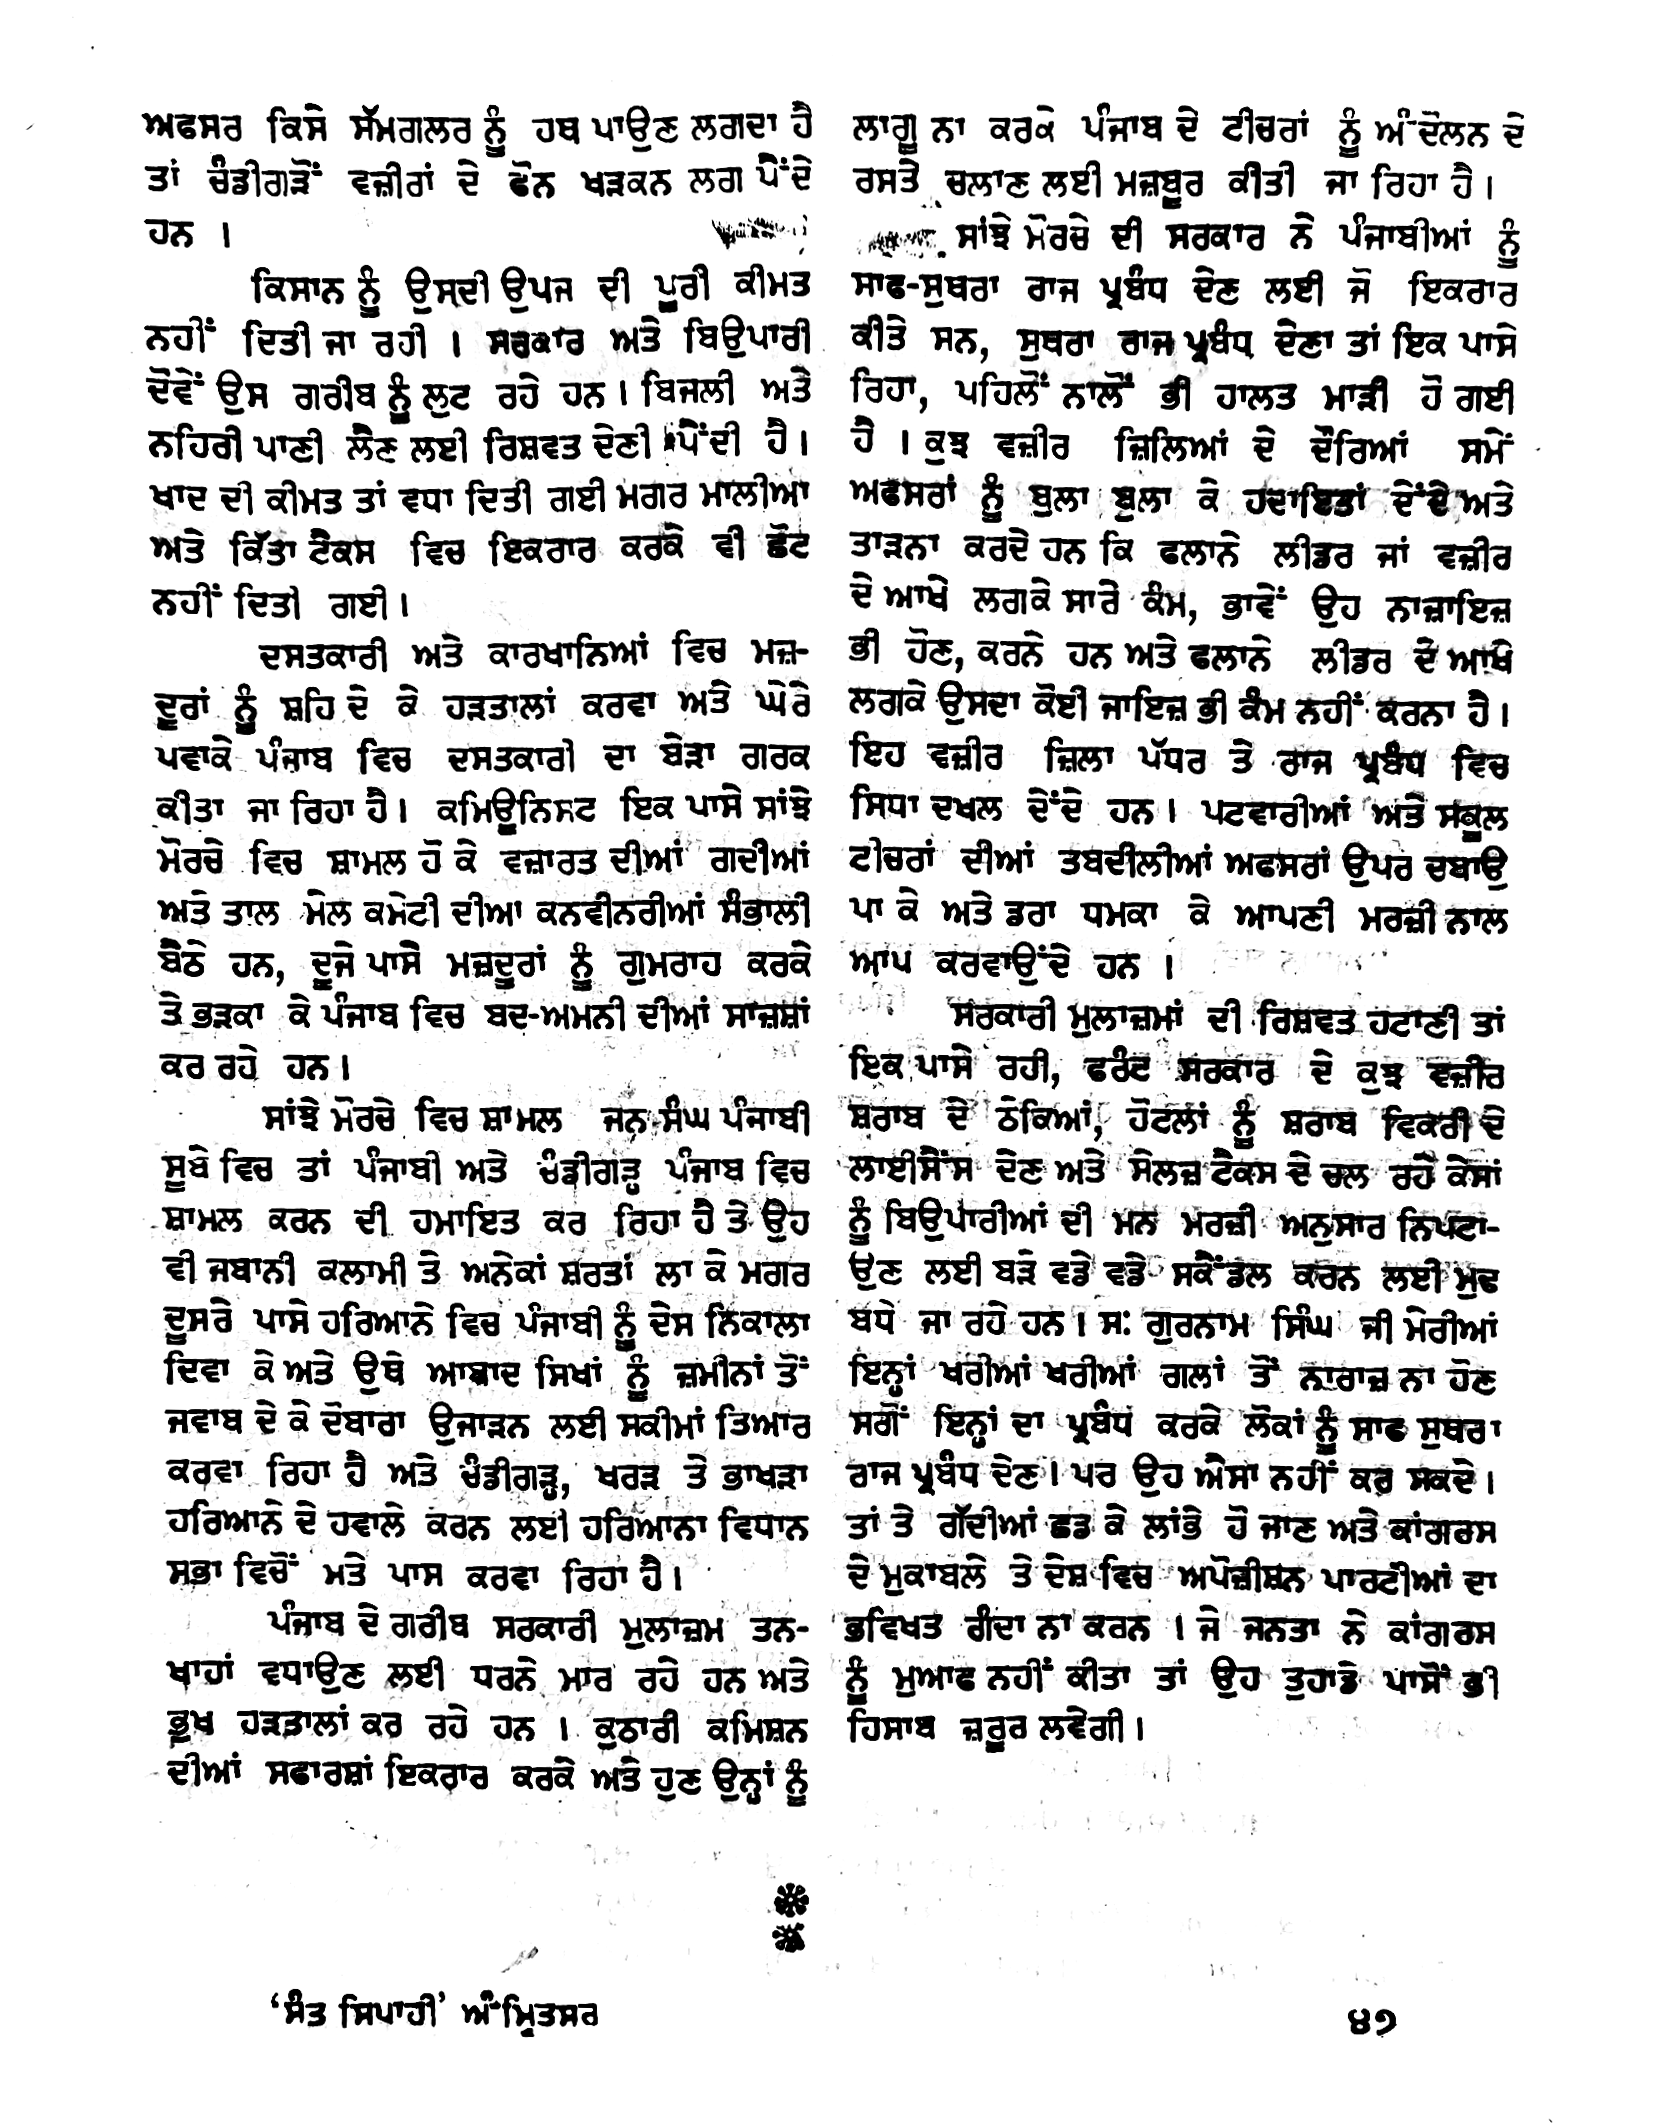 ਅਫਸਰ ਕਿਸੇ ਸੱਮਗਲਰ ਨੂੰ ਹਥ ਪਾਉਣ ਲਗਦਾ ਹੈ
ਤਾਂ ਚੰਡੀਗੜੋਂ ਵਜ਼ੀਰਾਂ ਦੇ ਫੋਨ ਖੜਕਨ ਲਗ ਪੈਂਦੇ
ਹਨ ।
ਕਿਸਾਨ ਨੂੰ ਉਸਦੀ ਉਪਜ ਦੀ ਪੂਰੀ ਕੀਮਤ
ਨਹੀਂ ਦਿਤੀ ਜਾ ਰਹੀ । ਸਰਕਾਰ ਅਤੇ ਬਿਉਪਾਰੀ
ਦੋਵੇਂ ਉਸ ਗਰੀਬ ਨੂੰ ਲੁਟ ਰਹੇ ਹਨ । ਬਿਜਲੀ ਅਤੇ
ਨਹਿਰੀ ਪਾਣੀ ਲੈਣ ਲਈ ਰਿਸ਼ਵਤ ਦੇਣੀ ਪੈਂਦੀ ਹੈ ।
ਖਾਦ ਦੀ ਕੀਮਤ ਤਾਂ ਵਧਾ ਦਿਤੀ ਗਈ ਮਗਰ ਮਾਲੀਆ
ਅਤੇ ਕਿੱਤਾ ਟੈਕਸ ਵਿਚ ਇਕਰਾਰ ਕਰਕੇ ਵੀ ਛੋਟ
ਨਹੀਂ ਦਿਤੀ ਗਈ ।
ਦਸਤਕਾਰੀ ਅਤੇ ਕਾਰਖਾਨਿਆਂ ਵਿਚ ਮਜ਼-
ਦੂਰਾਂ ਨੂੰ ਸ਼ਹਿ ਦੇ ਕੇ ਹੜਤਾਲਾਂ ਕਰਵਾ ਅਤੇ ਘੇਰੇ
ਪਵਾਕੇ ਪੰਜਾਬ ਵਿਚ ਦਸਤਕਾਰੀ ਦਾ ਬੇੜਾ ਗਰਕ
ਕੀਤਾ ਜਾ ਰਿਹਾ ਹੈ । ਕਮਿਊਨਿਸਟ ਇਕ ਪਾਸੇ ਸਾਂਝੇ
ਮੋਰਚੇ ਵਿਚ ਸ਼ਾਮਲ ਹੋ ਕੇ ਵਜ਼ਾਰਤ ਦੀਆਂ ਗਦੀਆਂ
ਅਤੇ ਤਾਲ ਮੇਲ ਕਮੇਟੀ ਦੀਆ ਕਨਵੀਨਰੀਆਂ ਸੰਭਾਲੀ
ਬੈਠੇ ਹਨ, ਦੂਜੇ ਪਾਸੇ ਮਜ਼ਦੂਰਾਂ ਨੂੰ ਗੁਮਰਾਹ ਕਰਕੇ
ਤੇ ਭੜਕਾ ਕੇ ਪੰਜਾਬ ਵਿਚ ਬਦ-ਅਮਨੀ ਦੀਆਂ ਸਾਜ਼ਸ਼ਾਂ
ਕਰ ਰਹੇ ਹਨ ।
ਸਾਂਝੇ ਮੋਰਚੇ ਵਿਚ ਸ਼ਾਮਲ ਜਨ-ਸੰਘ ਪੰਜਾਬੀ
ਸੂਬੇ ਵਿਚ ਤਾਂ ਪੰਜਾਬੀ ਅਤੇ ਚੰਡੀਗੜ੍ਹ ਪੰਜਾਬ ਵਿਚ
ਸ਼ਾਮਲ ਕਰਨ ਦੀ ਹਮਾਇਤ ਕਰ ਰਿਹਾ ਹੈ ਤੇ ਉਹ
ਵੀ ਜਬਾਨੀ ਕਲਾਮੀ ਤੇ ਅਨੇਕਾਂ ਸ਼ਰਤਾਂ ਲਾ ਕੇ ਮਗਰ
ਦੂਸਰੇ ਪਾਸੇ ਹਰਿਆਨੇ ਵਿਚ ਪੰਜਾਬੀ ਨੂੰ ਦੇਸ ਨਿਕਾਲਾ
ਦਿਵਾ ਕੇ ਅਤੇ ਉਥੇ ਆਬਾਦ ਸਿਖਾਂ ਨੂੰ ਜ਼ਮੀਨਾਂ ਤੋਂ
ਜਵਾਬ ਦੇ ਕੇ ਦੋਬਾਰਾ ਉਜਾੜਨ ਲਈ ਸਕੀਮਾਂ ਤਿਆਰ
ਕਰਵਾ ਰਿਹਾ ਹੈ ਅਤੇ ਚੰਡੀਗੜ੍ਹ, ਖਰੜ ਤੇ ਭਾਖੜਾ
ਹਰਿਆਨੇ ਦੇ ਹਵਾਲੇ ਕਰਨ ਲਈ ਹਰਿਆਨਾ ਵਿਧਾਨ
ਸਭਾ ਵਿਚੋਂ ਮਤੇ ਪਾਸ ਕਰਵਾ ਰਿਹਾ ਹੈ ।
ਪੰਜਾਬ ਦੇ ਗਰੀਬ ਸਰਕਾਰੀ ਮੁਲਾਜ਼ਮ ਤਨ-
ਖਾਹਾਂ ਵਧਾਉਣ ਲਈ ਧਰਨੇ ਮਾਰ ਰਹੇ ਹਨ ਅਤੇ
ਭੁਖ ਹੜਤਾਲਾਂ ਕਰ ਰਹੇ ਹਨ । ਕੁਠਾਰੀ ਕਮਿਸ਼ਨ
ਦੀਆਂ ਸਫਾਰਸ਼ਾਂ ਇਕਰਾਰ ਕਰਕੇ ਅਤੇ ਹੁਣ ਉਨ੍ਹਾਂ ਨੂੰ
ਲਾਗੂ ਨਾ ਕਰਕੇ ਪੰਜਾਬ ਦੇ ਟੀਚਰਾਂ ਨੂੰ ਅੰਦੋਲਨ ਦੇ
ਰਸਤੇ ਚਲਾਣ ਲਈ ਮਜ਼ਬੂਰ ਕੀਤੀ ਜਾ ਰਿਹਾ ਹੈ ।
ਸਾਂਝੇ ਮੋਰਚੇ ਦੀ ਸਰਕਾਰ ਨੇ ਪੰਜਾਬੀਆਂ ਨੂੰ
ਸਾਫ-ਸੁਥਰਾ ਰਾਜ ਪ੍ਰਬੰਧ ਦੇਣ ਲਈ ਜੋ ਇਕਰਾਰ
ਕੀਤੇ ਸਨ, ਸੁਥਰਾ ਰਾਜ ਪ੍ਰਬੰਧ ਦੇਣਾ ਤਾਂ ਇਕ ਪਾਸੇ
ਰਿਹਾ, ਪਹਿਲੋਂ ਨਾਲੋਂ ਭੀ ਹਾਲਤ ਮਾੜੀ ਹੋ ਗਈ
ਹੈ । ਕੁਝ ਵਜ਼ੀਰ ਜ਼ਿਲਿਆਂ ਦੇ ਦੌਰਿਆਂ ਸਮੇਂ
ਅਫਸਰਾਂ ਨੂੰ ਬੁਲਾ ਬੁਲਾ ਕੇ ਹਦਾਇਤਾਂ ਦੇਂਦੇ ਅਤੇ
ਤਾੜਨਾ ਕਰਦੇ ਹਨ ਕਿ ਫਲਾਨੇ ਲੀਡਰ ਜਾਂ ਵਜ਼ੀਰ
ਦੇ ਆਖੇ ਲਗਕੇ ਸਾਰੇ ਕੰਮ, ਭਾਵੇਂ ਉਹ ਨਾਜ਼ਾਇਜ਼
ਭੀ ਹੋਣ, ਕਰਨੇ ਹਨ ਅਤੇ ਫਲਾਨੇ ਲੀਡਰ ਦੇ ਆਖੇ
ਲਗਕੇ ਉਸਦਾ ਕੋਈ ਜਾਇਜ਼ ਭੀ ਕੰਮ ਨਹੀਂ ਕਰਨਾ ਹੈ ।
ਇਹ ਵਜ਼ੀਰ ਜ਼ਿਲਾ ਪੱਧਰ ਤੇ ਰਾਜ ਪ੍ਰਬੰਧ ਵਿਚ
ਸਿਧਾ ਦਖਲ ਦੇਂਦੇ ਹਨ । ਪਟਵਾਰੀਆਂ ਅਤੇ ਸਕੂਲ
ਟੀਚਰਾਂ ਦੀਆਂ ਤਬਦੀਲੀਆਂ ਅਫਸਰਾਂ ਉਪਰ ਚਬਾਉ
ਪਾ ਕੇ ਅਤੇ ਡਰਾ ਧਮਕਾ ਕੇ ਆਪਣੀ ਮਰਜ਼ੀ ਨਾਲ
ਆਪ ਕਰਵਾਉਂਦੇ ਹਨ ।
ਸਰਕਾਰੀ ਮੁਲਾਜ਼ਮਾਂ ਦੀ ਰਿਸ਼ਵਤ ਹਟਾਣੀ ਤਾਂ
ਇਕ ਪਾਸੇ ਰਹੀ, ਫਰੰਟ ਸਰਕਾਰ ਦੇ ਕੁਝ ਵਜ਼ੀਰ
ਸ਼ਰਾਬ ਦੇ ਠੇਕਿਆਂ, ਹੋਟਲਾਂ ਨੂੰ ਸ਼ਰਾਬ ਵਿਕਰੀ ਦੇ
ਲਾਈਸੈਂਸ ਦੇਣ ਅਤੇ ਸੇਲਜ਼ ਟੈਕਸ ਦੇ ਚਲ ਰਹੇ ਕੇਸਾਂ
ਨੂੰ ਬਿਉਪਾਰੀਆਂ ਦੀ ਮਨ ਮਰਜ਼ੀ ਅਨੁਸਾਰ ਨਿਪਟਾ-
ਉਣ ਲਈ ਬੜੇ ਵਡੇ ਵਡੇ ਸਕੈਂਡਲ ਕਰਨ ਲਈ ਮੁਢ
ਬਧੇ ਜਾ ਰਹੇ ਹਨ । ਸ: ਗੁਰਨਾਮ ਸਿੰਘ ਜੀ ਮੇਰੀਆਂ
ਇਨ੍ਹਾਂ ਖਰੀਆਂ ਖਰੀਆਂ ਗਲਾਂ ਤੋਂ ਨਾਰਾਜ਼ ਨਾ ਹੋਣ
ਸਗੋਂ ਇਨ੍ਹਾਂ ਦਾ ਪ੍ਰਬੰਧ ਕਰਕੇ ਲੋਕਾਂ ਨੂੰ ਸਾਫ ਸੁਥਰਾ
ਰਾਜ ਪ੍ਰਬੰਧ ਦੇਣ । ਪਰ ਉਹ ਐਸਾ ਨਹੀਂ ਕਰ ਸਕਦੇ ।
ਤਾਂ ਤੇ ਗੱਦੀਆਂ ਛਡ ਕੇ ਲਾਂਭੇ ਹੋ ਜਾਣ ਅਤੇ ਕਾਂਗਰਸ
ਦੇ ਮੁਕਾਬਲੇ ਤੇ ਦੇਸ਼ ਵਿਚ ਅਪੋਜ਼ੀਸ਼ਨ ਪਾਰਟੀਆਂ ਦਾ
ਭਵਿਖਤ ਗੰਦਾ ਨਾ ਕਰਨ । ਜੇ ਜਨਤਾ ਨੇ ਕਾਂਗਰਸ
ਨੂੰ ਮੁਆਫ ਨਹੀਂ ਕੀਤਾ ਤਾਂ ਉਹ ਤੁਹਾਡੇ ਪਾਸੋਂ ਭੀ
ਹਿਸਾਬ ਜ਼ਰੂਰ ਲਵੇਗੀ ।
‘ਸੰਤ ਸਿਪਾਹੀ’ ਅੰਮ੍ਰਿਤਸਰ
੪੭